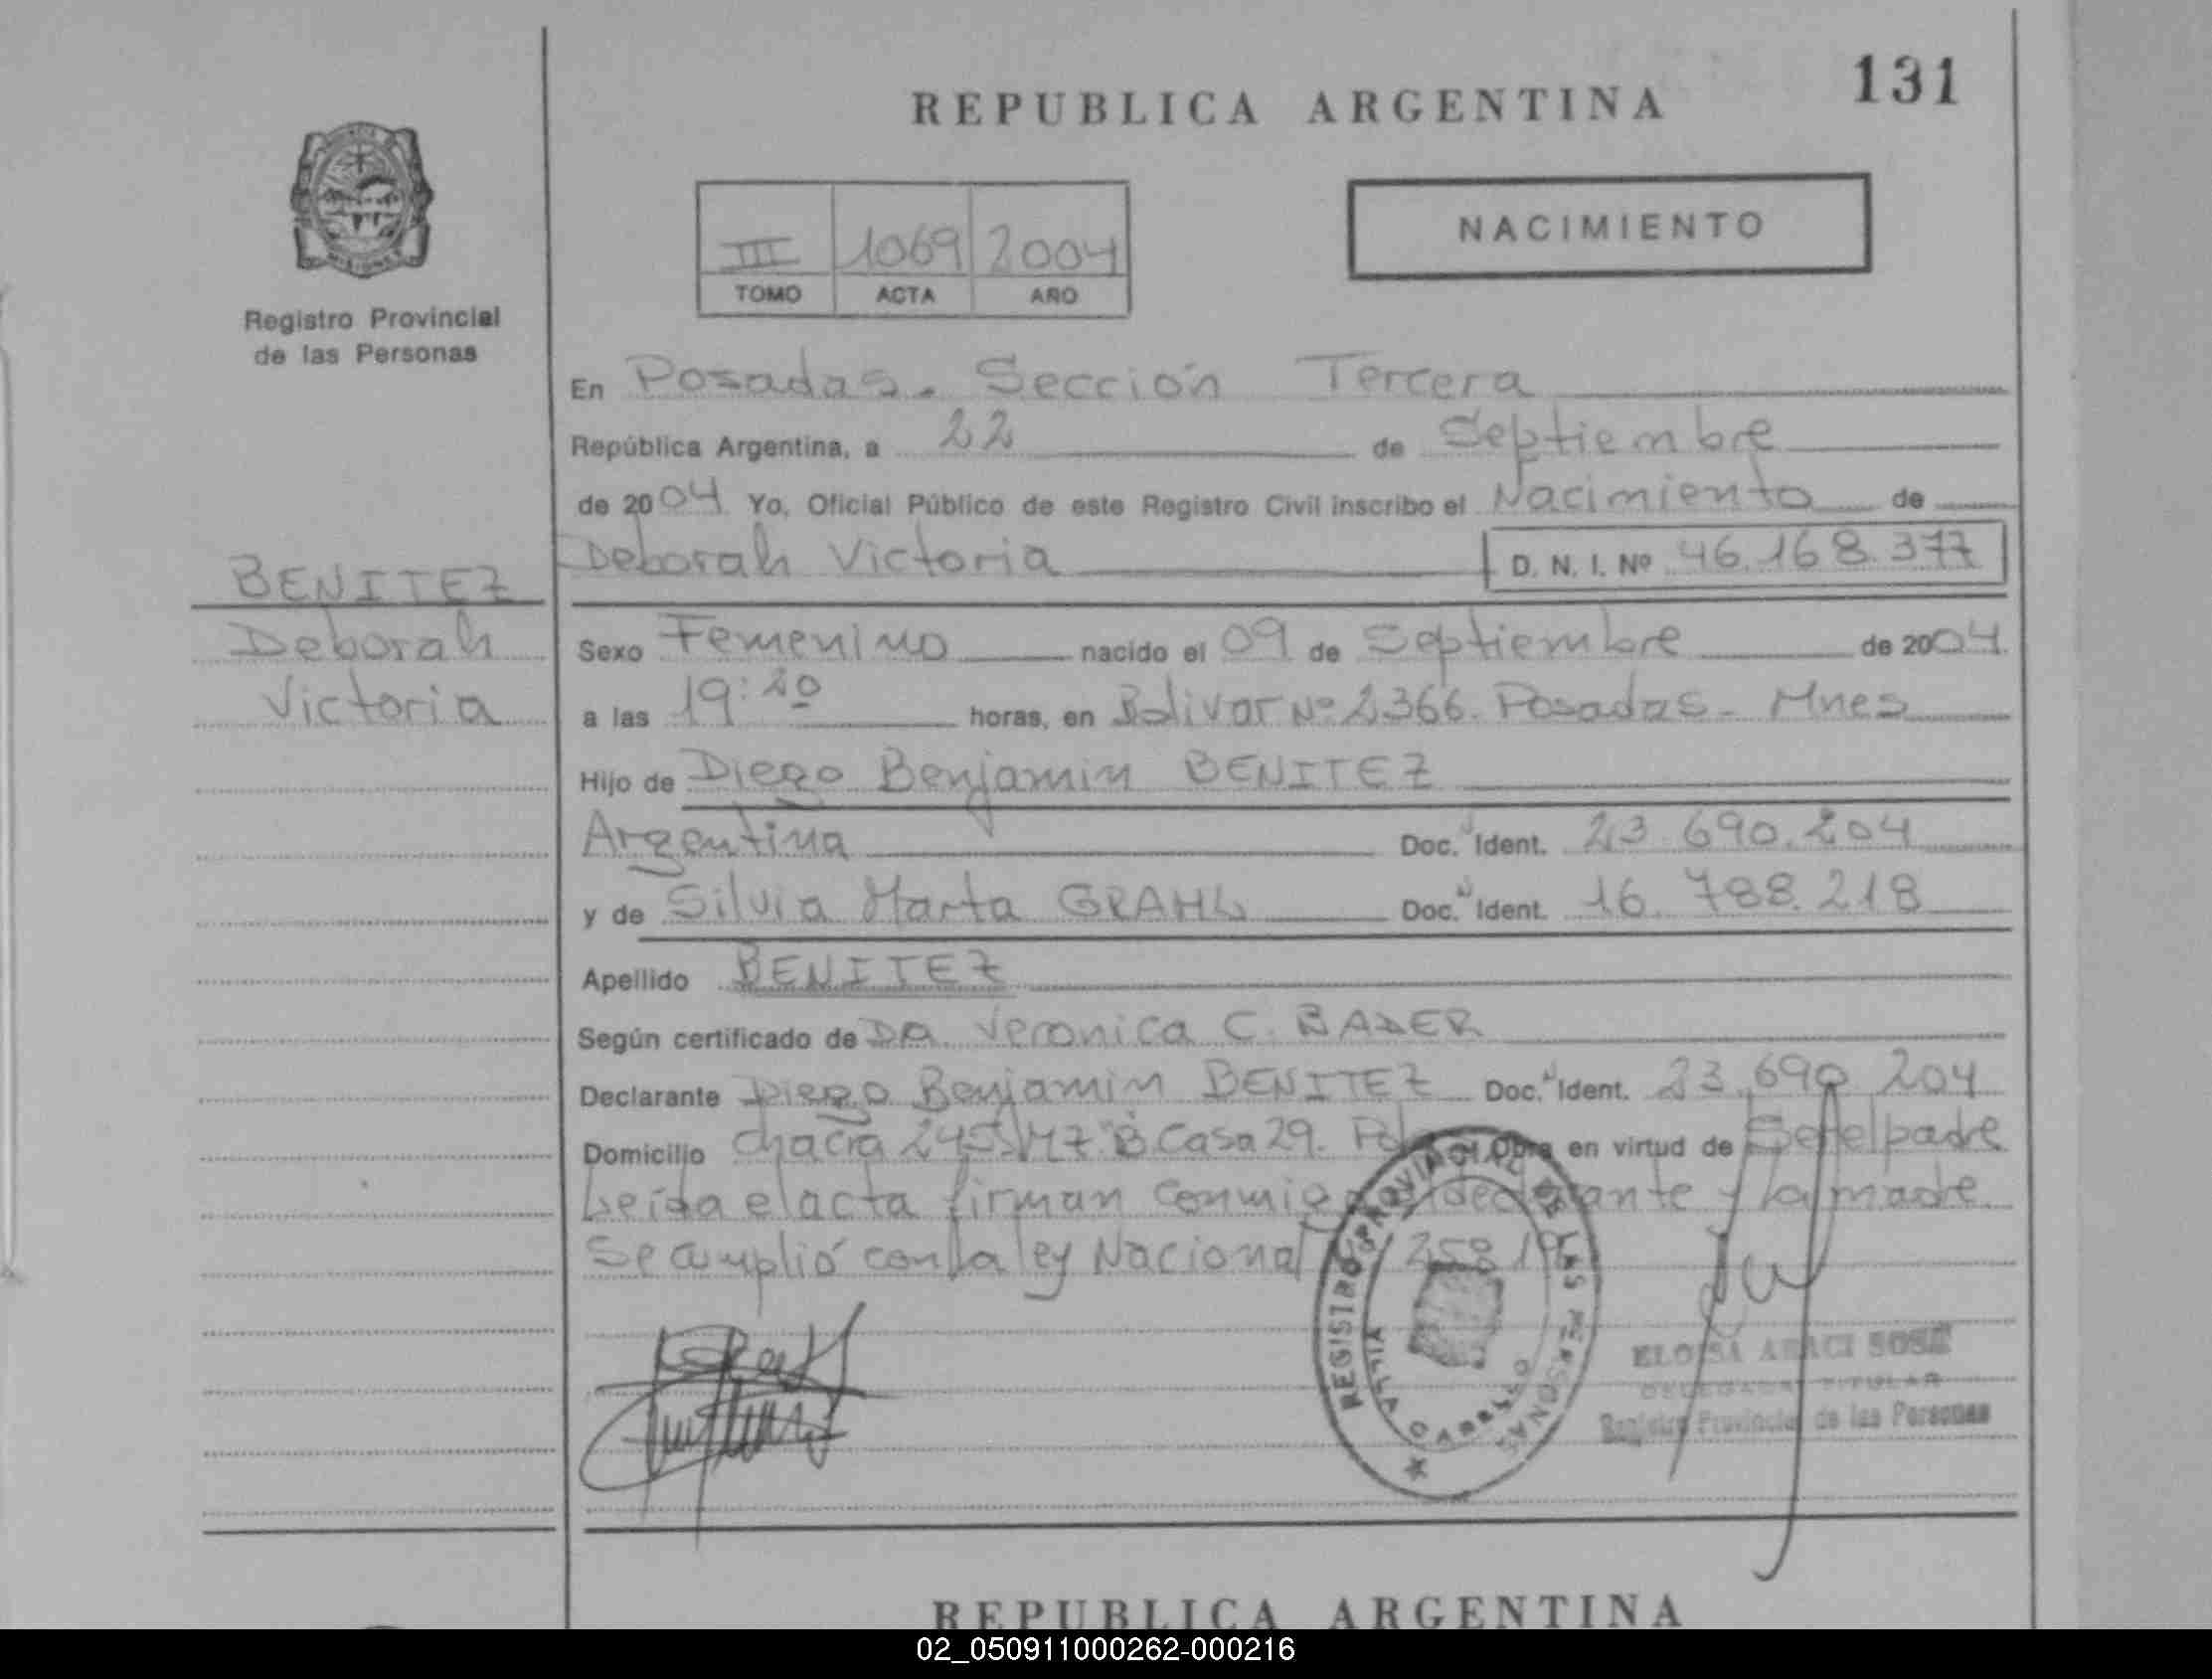 131
REPUBLICA ARGENTINA
NACIMIENTO
III 1069 2004
TOMO ACTA AÑO
Registro Provincial
de las Personas
En Posadas. Sección Tercera
República Argentina, a 22 de Septiembre
de 2004 Yo, Oficial Público de este Registro Civil inscribo el Nacimiento de
Deborah Victoria D. N. I. Nº 46.168.377
BENITEZ
Deborah
Victoria
Sexo Femenino nacido el 09 de Septiembre de 2004
a las 19:20 horas, en Bolivar Nº 2366. Posadas - Mnes
Hijo de Diego Benjamin BENITEZ
Argentina Doc. Ident. 23.690.204
y de Silvia Marta GRAHL Doc. Ident. 16.788.218
Apellido BENITEZ
Según certificado de DRA. Veronica C. BADER
Declarante Diego Benjamin BENITEZ Doc. Ident. 23.690.204
Domicilio Chacra 245 Mz "B" Casa 29. Obra en virtud de Ser el padre
Leída el acta firman conmigo el declarante y la madre.
Se cumplió con la ley Nacional
REGISTRO PROVINCIAL DE LAS PERSONAS
ELOISA ARACI SOSA
DELEGADA TITULAR
Registro Provincial de las Personas
REPUBLICA ARGENTINA
02_050911000262-000216